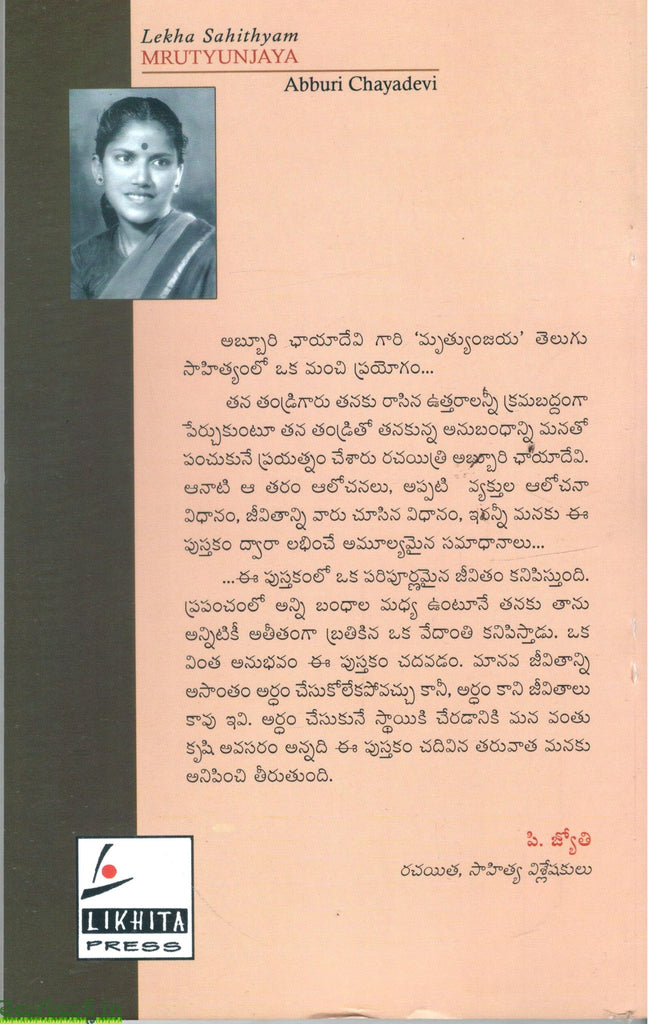 Lekha Sahithyam
MRUTYUNJAYA
Abburi Chayadevi
అబ్బూరి ఛాయాదేవి గారి ‘మృత్యుంజయ’ తెలుగు
సాహిత్యంలో ఒక మంచి ప్రయోగం...
తన తండ్రిగారు తనకు రాసిన ఉత్తరాలన్నీ క్రమబద్దంగా
పేర్చుకుంటూ తన తండ్రితో తనకున్న అనుబంధాన్ని మనతో
పంచుకునే ప్రయత్నం చేశారు రచయిత్రి అబ్బూరి ఛాయాదేవి.
ఆనాటి ఆ తరం ఆలోచనలు, అప్పటి వ్యక్తుల ఆలోచనా
విధానం, జీవితాన్ని వారు చూసిన విధానం, ఇవన్నీ మనకు ఈ
పుస్తకం ద్వారా లభించే అమూల్యమైన సమాధానాలు...
...ఈ పుస్తకంలో ఒక పరిపూర్ణమైన జీవితం కనిపిస్తుంది.
ప్రపంచంలో అన్ని బంధాల మధ్య ఉంటూనే తనకు తాను
అన్నిటికీ అతీతంగా బ్రతికిన ఒక వేదాంతి కనిపిస్తాడు. ఒక
వింత అనుభవం ఈ పుస్తకం చదవడం. మానవ జీవితాన్ని
అసాంతం అర్థం చేసుకోలేకపోవచ్చు కానీ, అర్థం కాని జీవితాలు
కావు ఇవి. అర్థం చేసుకునే స్థాయికి చేరడానికి మన వంతు
కృషి అవసరం అన్నది ఈ పుస్తకం చదివిన తరువాత మనకు
అనిపించి తీరుతుంది.
పి. జ్యోతి
రచయిత, సాహిత్య విశ్లేషకులు
LIKHITA
PRESS